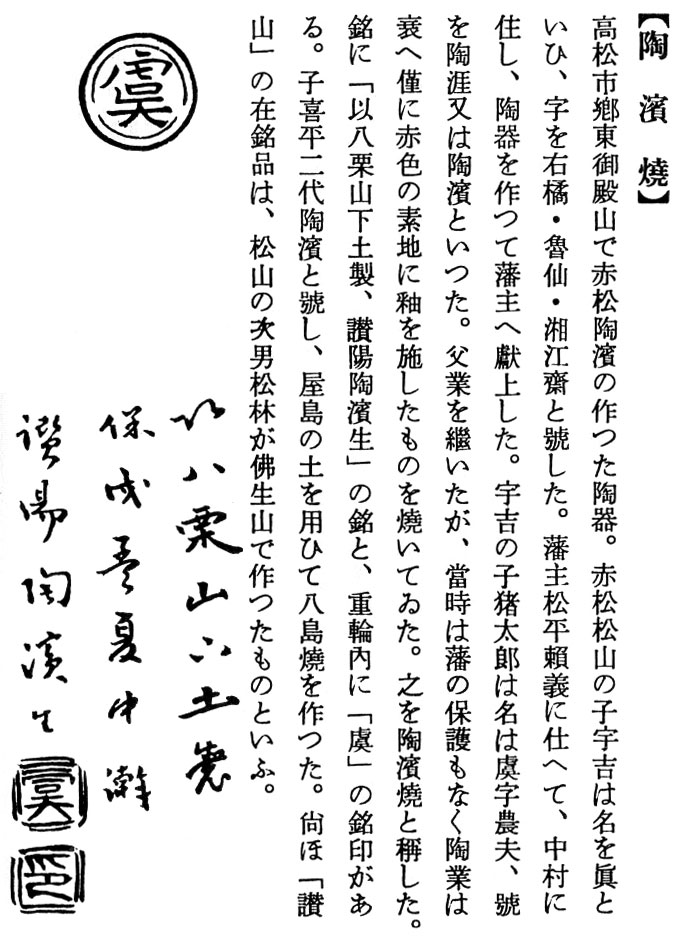 【陶濱燒】
高松市鄕東御殿山で赤松陶濱の作つた陶器。赤松松山の子宇吉は名を眞と
いひ、字を右橘・魯仙・湘江齋と號した。藩主松平賴義に仕へて、中村に
住し、陶器を作つて藩主へ獻上した。宇吉の子猪太郞は名は虞字農夫、號
を陶涯又は陶濱といつた。父業を繼いたが、當時は藩の保護もなく陶業は
衰へ僅に赤色の素地に釉を施したものを燒いてゐた。之を陶濱燒と稱した。
銘に「以八栗山下土製、讃陽陶濱生」の銘と、重輪內に「虞」の銘印があ
る。子喜平二代陶濱と號し、屋島の土を用ひて八島燒を作つた。尙ほ「讃
山」の在銘品は、松山の次男松林が佛生山で作つたものといふ。
虞
以八栗山下土製
保戌孟夏中澣
讃陽陶濱生
虞
印